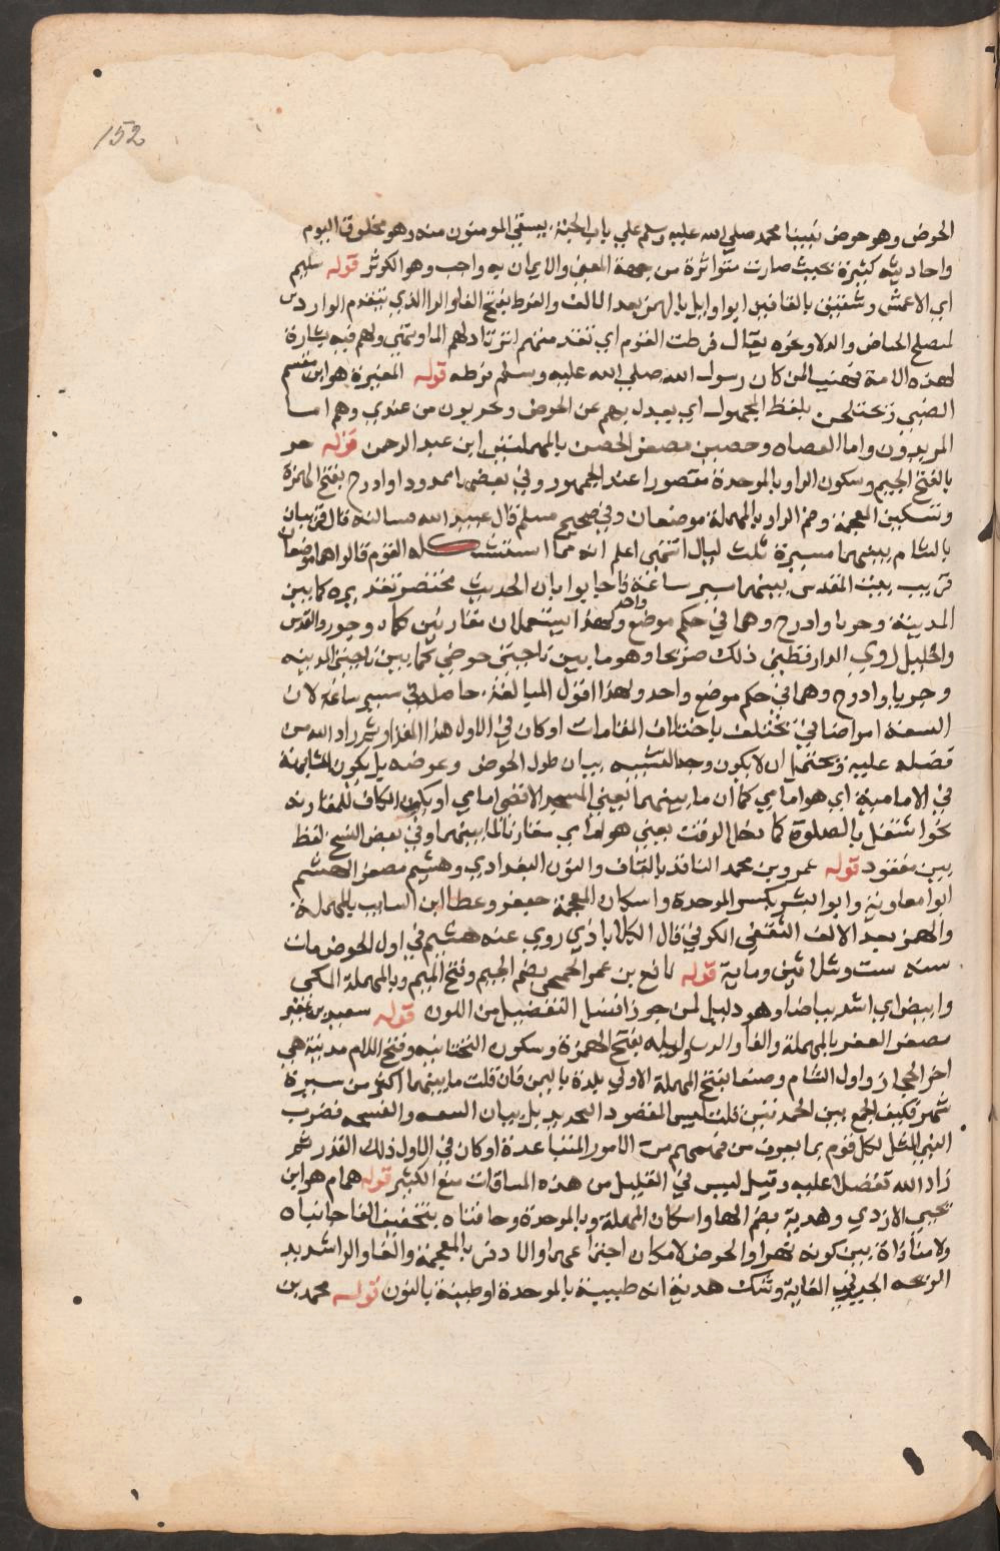 152
الحوض وهو حوض نبينا محمد صلي الله عليه وسلم علي باب الجنة يسقي المومنون منه وهو مخلوق اليوم
واحاديثه كثيرة بحيث صارت متواترة من جهة المعني والايمان به واجب وهو الكوثر قوله سليم
اي الاعمش وشقيق بالقافين ابو وايل بالهمز بعد الالف والفرط بفتح الفا والرا الذي يتقدم الوارد
ليصلح الحياض والدلا ونحوه يقال فرطت القوم اي تقدمتهم لترتاد لهم الما وتهيي ولهم فيه بشارة
لهذه الامة فهنيا لمن كان رسول الله صلي الله عليه وسلم فرطه قوله المغيرة هو ابن مقسم
الضبي و يختلجن بلفظ المجهول اي يعدل بهم عن الحوض و يجذبون من عندي وهم اما
المرتدون واما العصاه وحصين مصغر الحصن بالمهملتين ابن عبد الرحمن قوله جر
بالفتح الجيم وسكون الرا وبالموحدة مقصورا عند الجمهور وفي بعضها ممدودا وادرح بفتح الهمزة
وتسكين المعجمة وضم الرا وبالمهملة موضعان وفي صحيح مسلم قال عبيد الله فسالته قال قريتان
بالشام بينهما مسيرة ثلث ليال انتهي اعلم انه مما استشكله القوم قالوا هما موضعان
قريب بيت المقدس بينهما سير ساعة فاجابوا بان الحديث مختصر تقديره كما بين
المدينة وجربا وادرح وهما في حكم موضع واحد وكهذا يستعملان متقارنين كماه وجور والقدس
والخليل روي الدارقطني ذلك صريحا وهو ما بين ناحيتي حوضي كما بين ناحيتي المدينه
وجربا وادرح وهما في حكم موضع واحد ولهذا اقول المبالغة حاصله في سير ساعة لان
السعة امر اضافي تختلف باختلاف المقامات او كان في الاول هذا المقدار ثم زاد الله من
فضله عليه ويحتمل ان لا يكون وجه التشبيه بيان طول الحوض وعرضه بل يكون المشابهة
في الامامية اي هو امامي كما ان ما بينهما يعني المسجد الاقصي امامي او يكون الكاف للمقارنه
نحو اشتغل بالصلوة كما دخل الوقت يعني هو امامي مقارنا لما بينهما وفي بعض النسخ لفظ
بين مفقود قوله عمرو بن محمد الناقد بالقاف والنون البغدادي وهشيم مصغر الهشم
ابو معاوية وابو البشر بكسر الموحدة واسكان المعجمة جعفر وعطا ابن السايب بالمهملة
والهمز بعد الالف الثقفي الكوفي قال الكلاباذي روي عنه هشيم في اول الحوض مات
سنه ست وثلاثين وماية قوله نافع بن عمر الجمحي بضم الجيم وفتح الميم وبالمهملة المكي
وابيض اي اشد بياضا وهو دليل لمن جوز افعل التفضيل من اللون قوله سعيد بن عفير
مصغر العفر بالمهملة والفا والرا وايله بفتح الهمزة وسكون التحتانيه وفتح اللام مدينة هي
اخر الحجاز واول الشام وصنعا بفتح المهملة الاولي بلدة باليمن فان قلت ما بينهما اكثر من سيرة
شهر فكيف الجمع بين الحديثين قلت ليس المقصود التحديد بل بيان السعه والفسحه فضرب
النبي المثل لكل قوم بما يعرف من فهمهم من الامور المتباعدة او كان في الاول ذلك القدر ثم
زاد الله تفضلا عليه وقيل ليس في القليل من هذه المسافات منع الكثير قوله همام هو ابن
يحيي الازدي وهدبة بضم الها واسكان المهملة وبالموحدة وحافتاه بتخفيف الفا جانباه
ولا منافاة بين كونه نهرا والحوض لامكان اجتماعهما والاذفر بالمعجمة والفا والرا شديد
الريحه الجيد في الغاية وشك هدبة انه طيبه بالموحدة او طينة بالنون قوله محمد بن